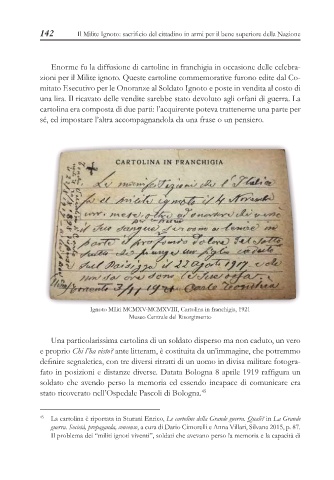 142 Il Milite Ignoto: sacrificio del cittadino in armi per il bene superiore della Nazione
Enorme fu la diffusione di cartoline in franchigia in occasione delle celebra-
zioni per il Milite ignoto. Queste cartoline commemorative furono edite dal Co-
mitato Esecutivo per le Onoranze al Soldato Ignoto e poste in vendita al costo di
una lira. Il ricavato delle vendite sarebbe stato devoluto agli orfani di guerra. La
cartolina era composta di due parti: l'acquirente poteva trattenerne una parte per
sé, ed impostare l'altra accompagnandola da una frase o un pensiero.
CARTOLINA IN FRANCHIGIA
Le manifestazioni che l'Italia
fa il milite ignoto il 4 Novembre
il suo sangue
parte il profondo dolore del
un figlio caduto
sul 22 Agosto 1917 e di
3/11 1921 Carlo
Ignoto Militi MCMXV-MCMXVIII, Cartolina in franchigia, 1921
Museo Centrale del Risorgimento
Una particolarissima cartolina di un soldato disperso ma non caduto, un vero
e proprio Chi l'ha visto? ante litteram, è costituita da un'immagine, che potremmo
definire segnaletica, con tre diversi ritratti di un uomo in divisa militare fotogra-
fato in posizioni e distanze diverse. Datata Bologna 8 aprile 1919 raffigura un
soldato che avendo perso la memoria ed essendo incapace di comunicare era
stato ricoverato nell'Ospedale Pascoli di Bologna.
La cartolina è riportata in Sturani Enrico, Le cartoline della Grande guerra. Quali? in La Grande
guerra. Società, propaganda, consenso, a cura di Dario Cimorelli e Anna Villari, Silvana 2015, p. 87.
Il problema dei "militi ignoti viventi", soldati che avevano perso la memoria e la capacità di